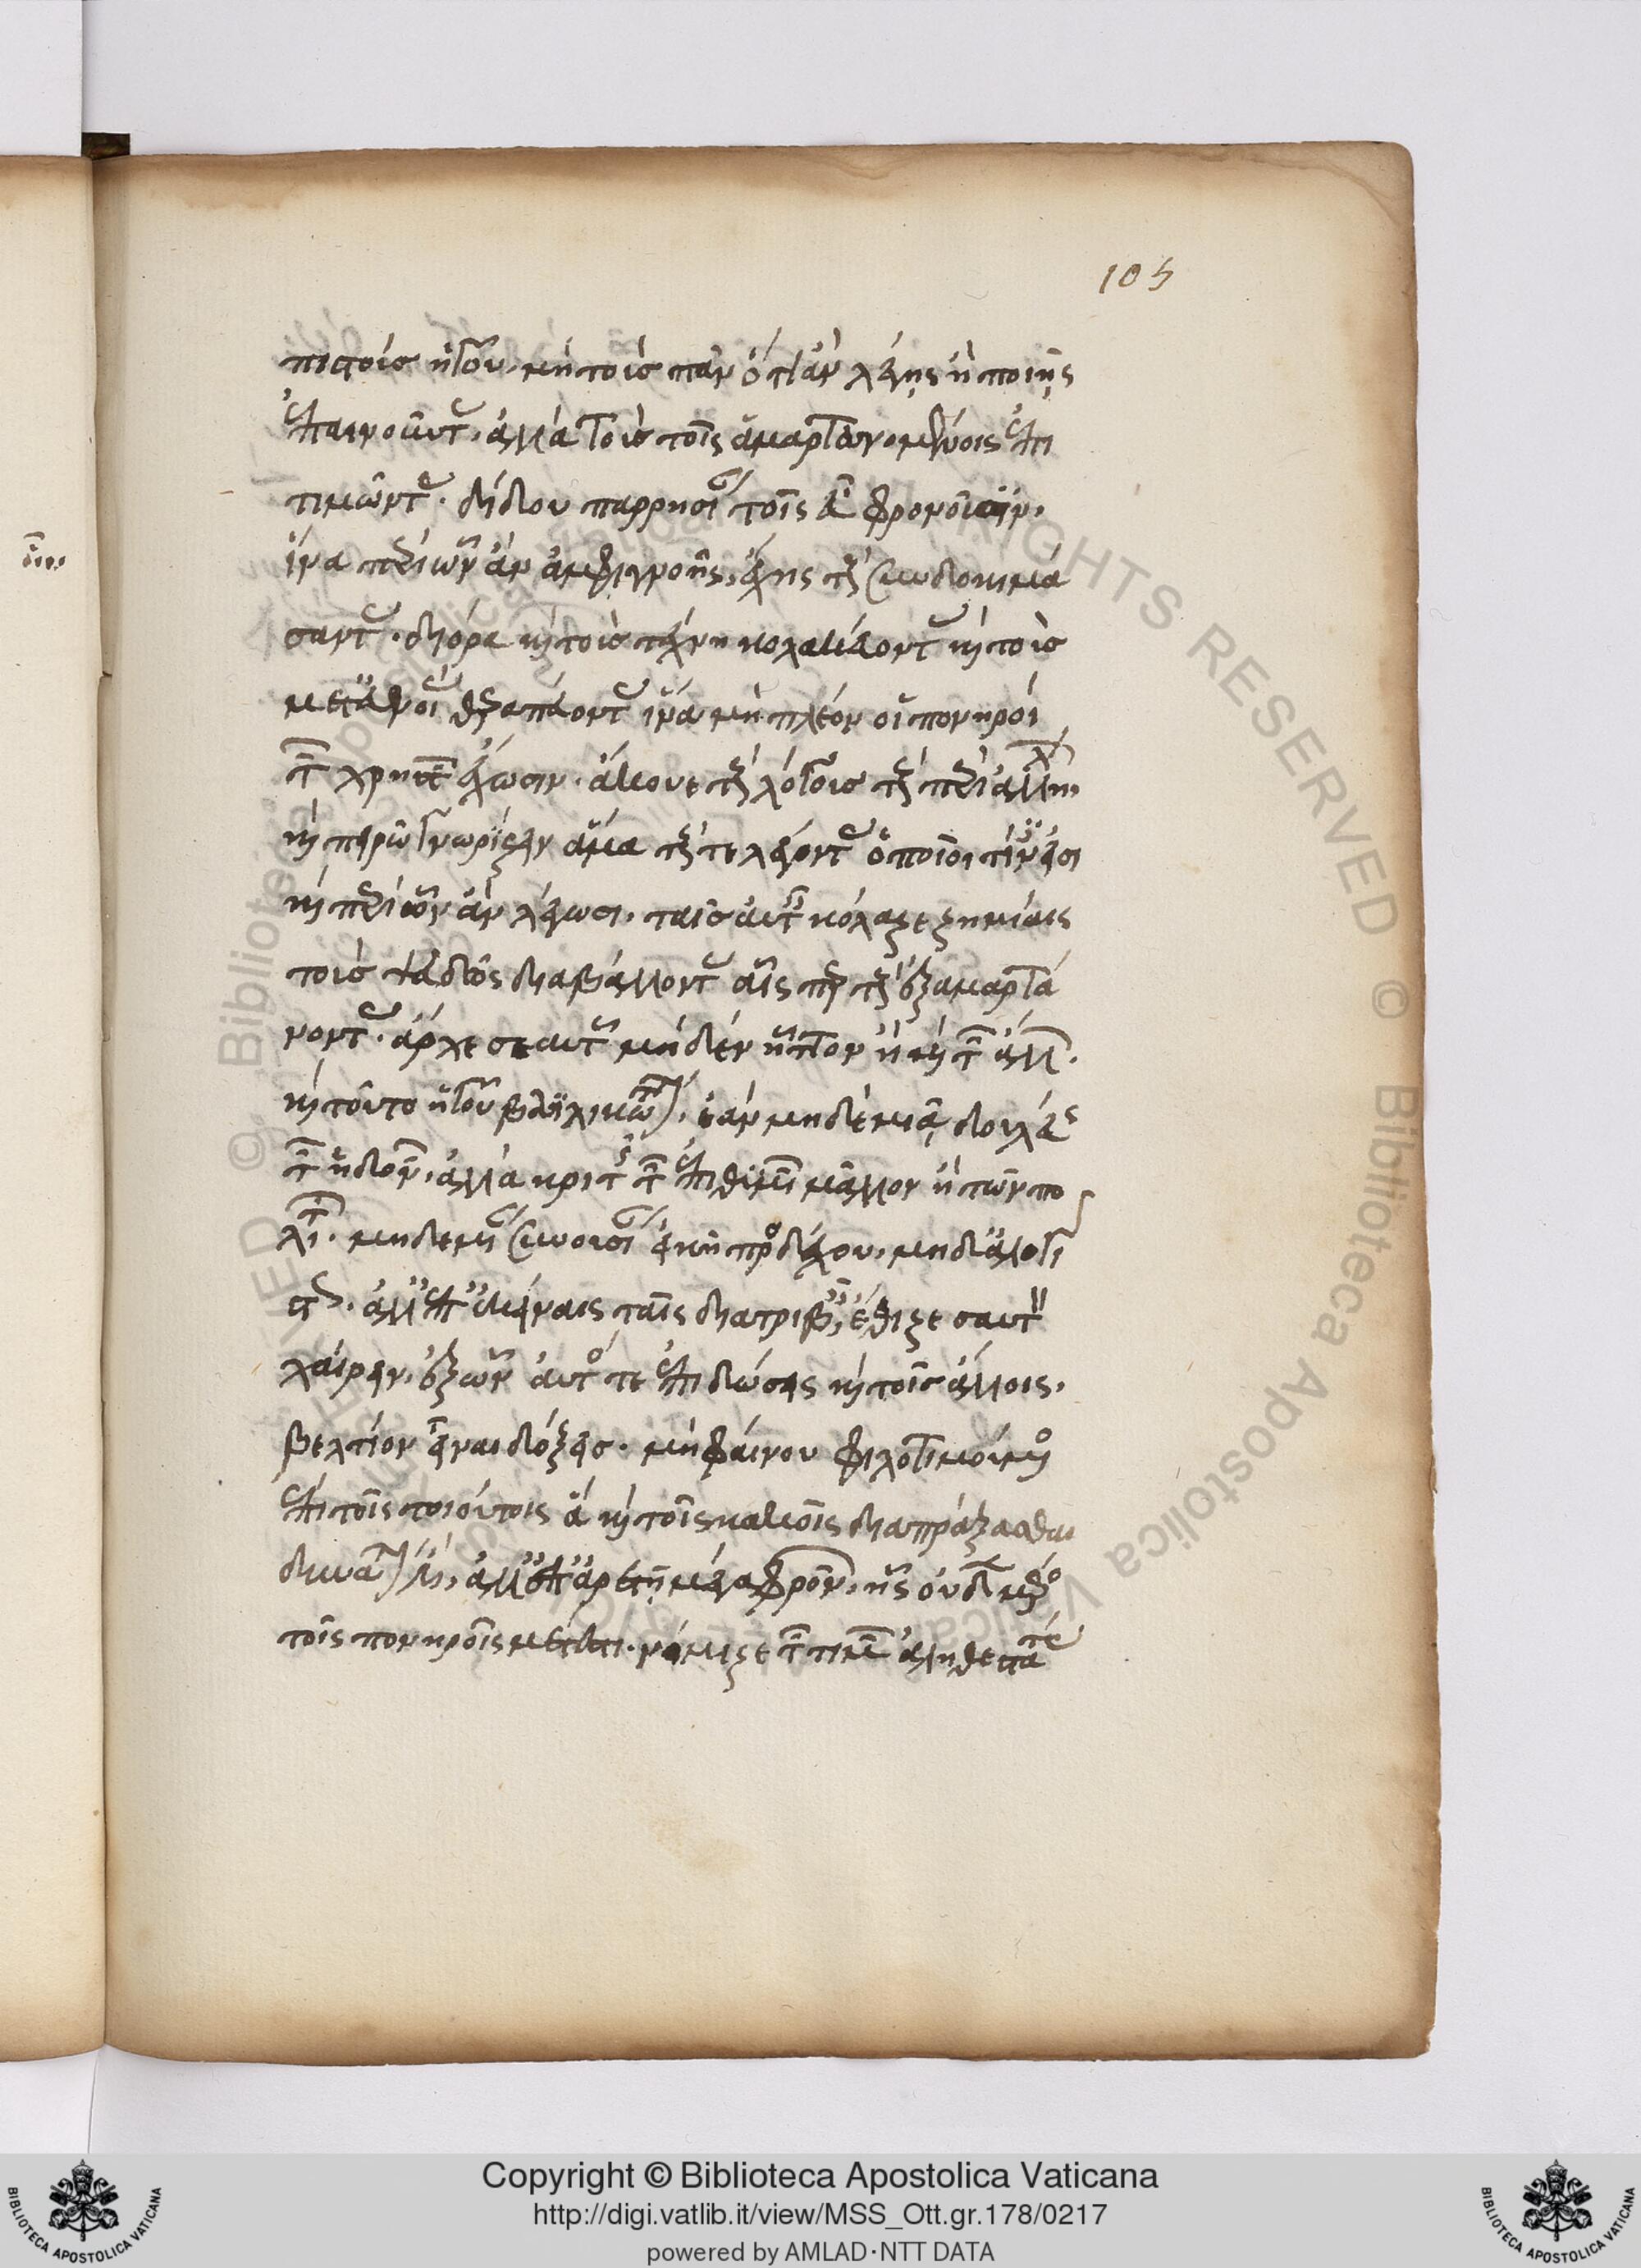 105
πιστοὺς ἡγοῦ, μὴ τοὺς πᾶν ὅ τι ἂν λέγῃς ἢ ποιῇς
ἐπαινοῦντας, ἀλλὰ τοὺς τοῖς ἁμαρτανομένοις ἐπι
τιμῶντας. δίδου παρρησίαν τοῖς εὖ φρονοῦσιν,
ἵνα περὶ ὧν ἂν ἀμφιγνοῇς, ἔχῃς τοὺς συνδοκιμά
σοντας. διόρα καὶ τοὺς τέχνῃ κολακεύοντας καὶ τοὺς
μετ' εὐνοίας θεραπεύοντας ἵνα μὴ πλέον οἱ πονηροὶ
τῶν χρηστῶν ἔχωσιν. ἄκουε τοὺς λόγους τοὺς περὶ ἀλλήλων,
καὶ πειρῶ γνωρίζειν ἅμα τούς τε λέγοντας ὁποῖοί τινές εἰσι
καὶ περὶ ὧν ἂν λέγωσι. ταῖς αὐταῖς κόλαζε ζημίαις
τοὺς ψευδῶς διαβάλλοντας αἷσπερ τοὺς ἐξαμαρτά
νοντας. ἄρχε σεαυτοῦ μηδὲν ἧττον ἢ καὶ τῶν ἄλλων.
καὶ τοῦτο ἡγοῦ βασιλικώτατον, ἐὰν μηδεμιᾷ δουλεύῃς
τῶν ἡδονῶν, ἀλλὰ κρατῇς τῶν ἐπιθυμιῶν μᾶλλον ἢ τῶν πο
λιτῶν. μηδεμίαν συνουσίαν εἰκῇ προσδέχου, μηδ' ἀλογί
στως. ἀλλ' ἐπ' ἐκείναις ταῖς διατριβαῖς ἔθιζε σαυτὸν
χαίρειν, ἐξ ὧν αὐτός τε ἐπιδώσεις καὶ τοῖς ἄλλοις,
βελτίων εἶναι δόξεις. μὴ φαίνου φιλοτιμούμενος
ἐπὶ τοῖς τοιούτοις ἃ καὶ τοῖς κακοῖς διαπράξασθαι
δυνατόν ἐστιν, ἀλλ' ἐπ' ἀρετῇ μέγα φρονῶν, ἧς οὐδὲν μέρος
τοῖς πονηροῖς μέτεστι. νόμιζε τῶν τιμῶν ἀληθεστά
τας